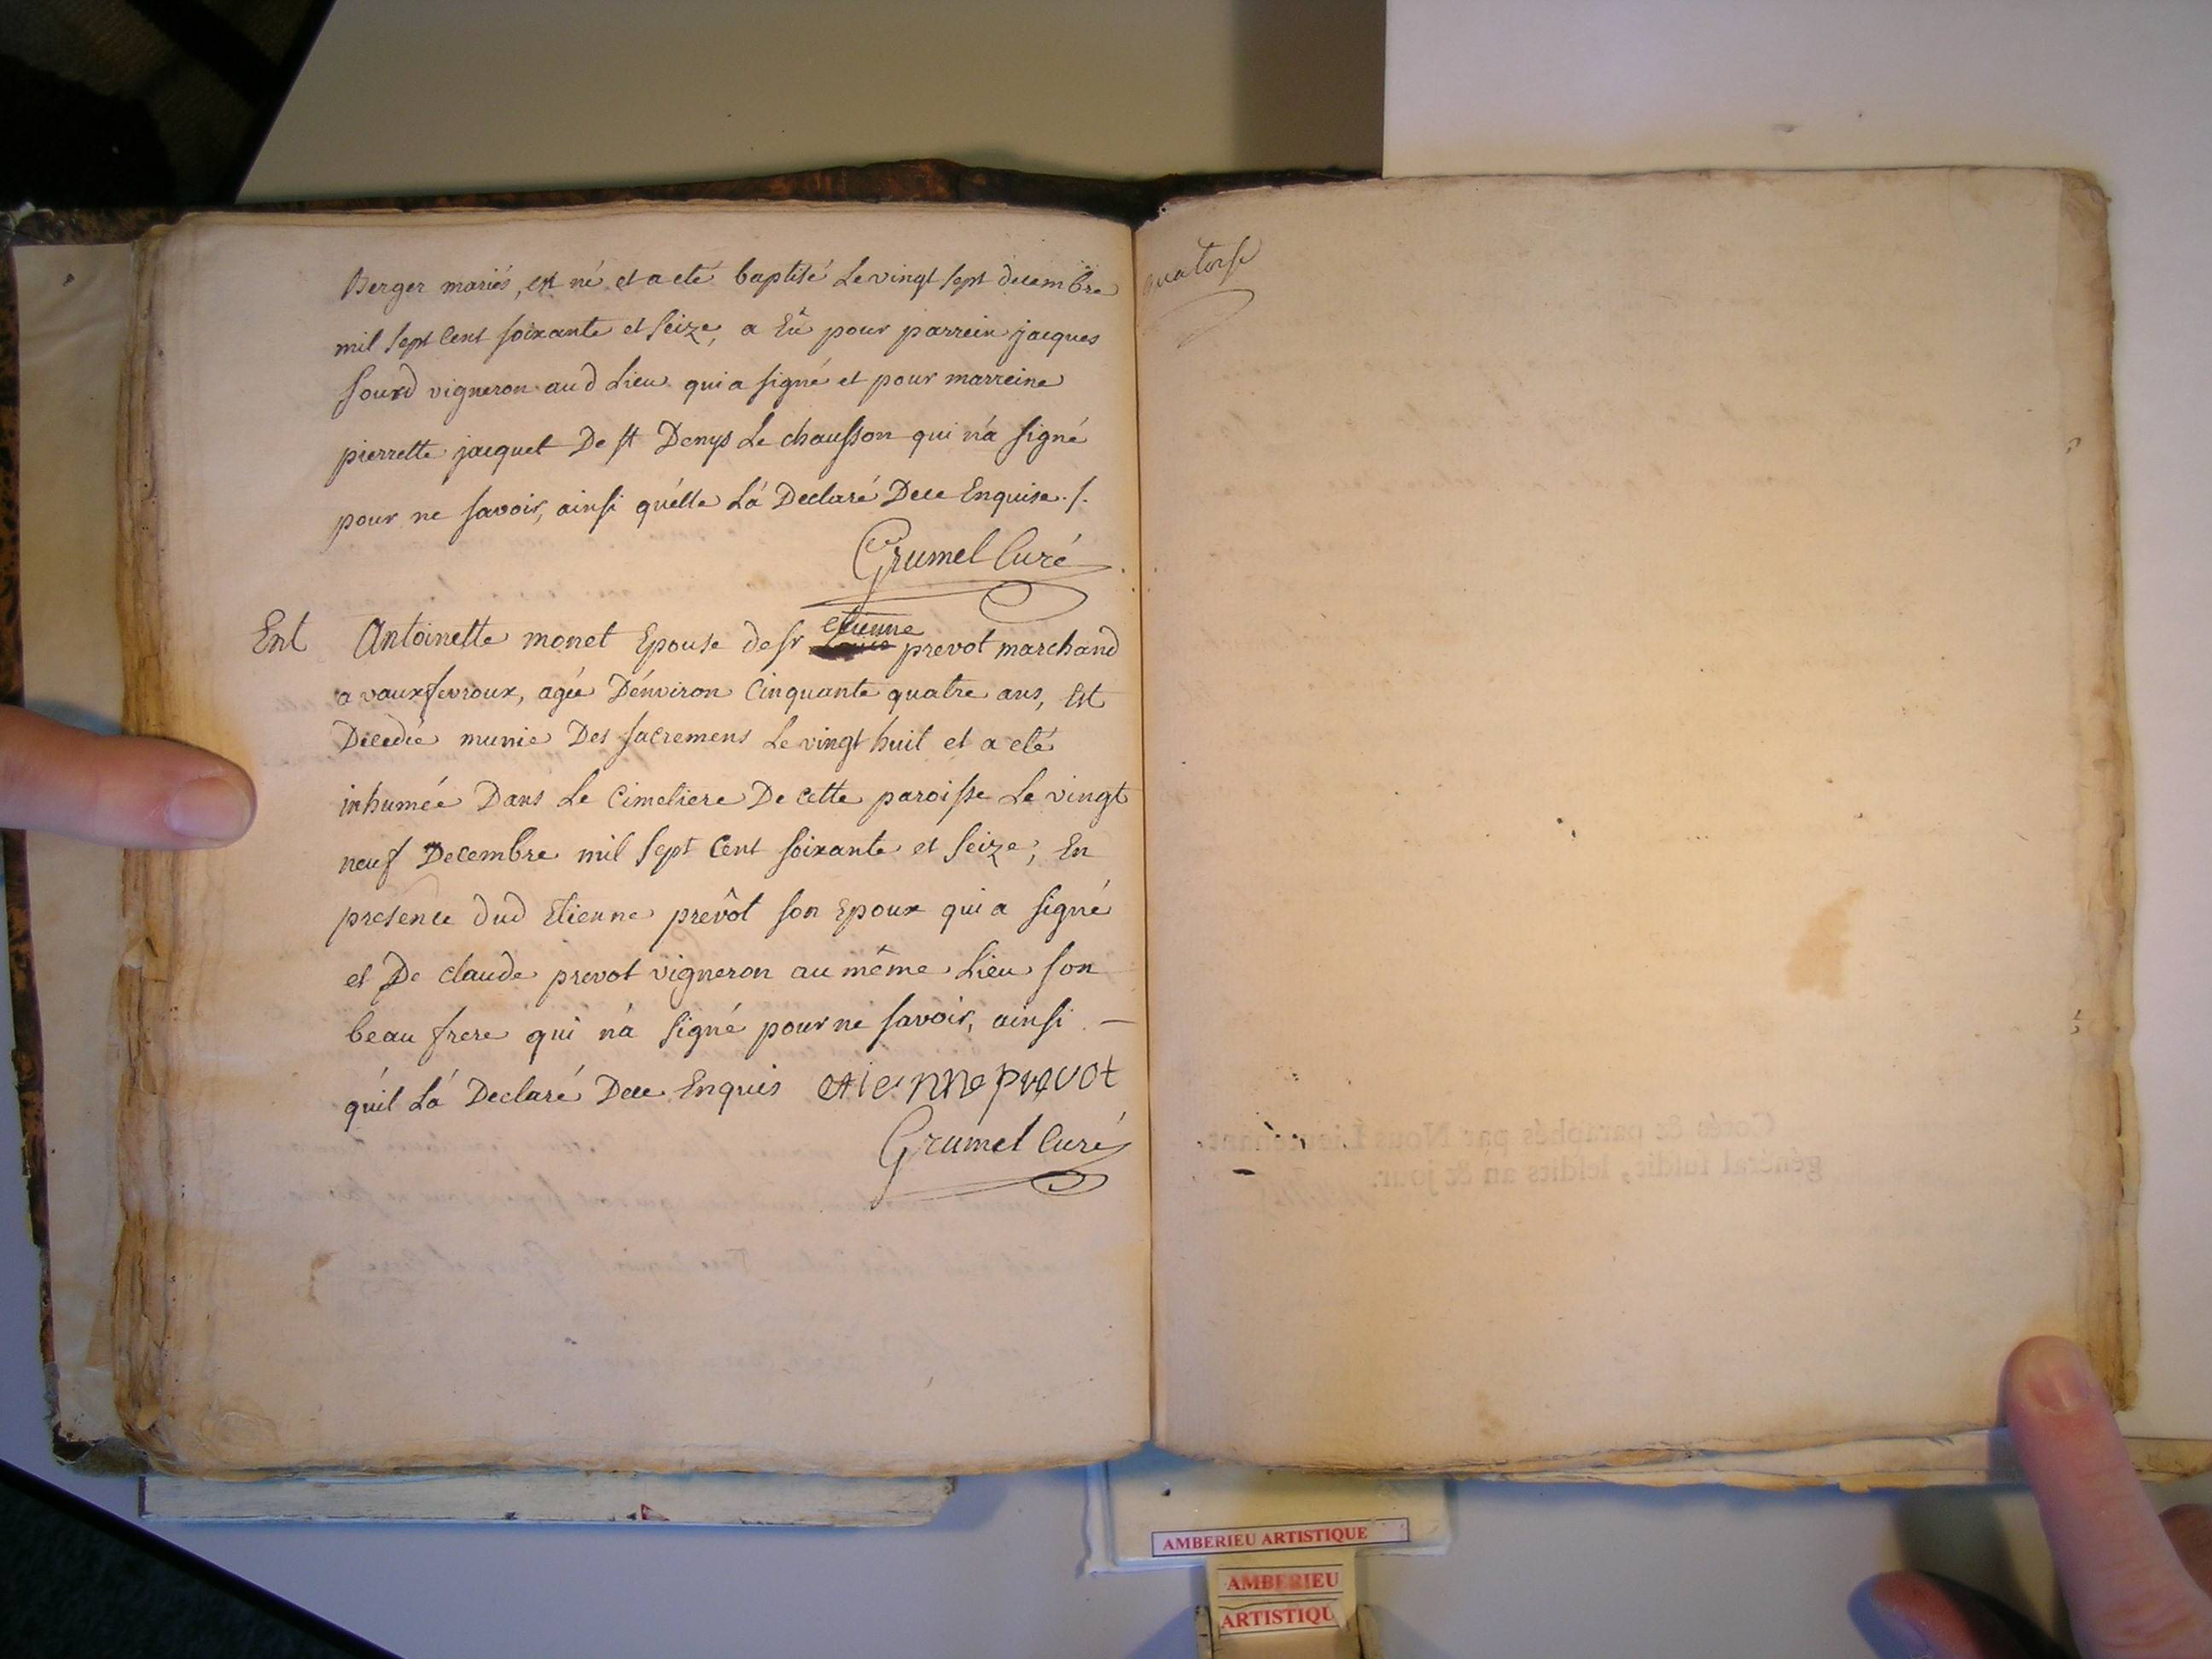 Berger mariés, est né et a eté baptisé Le vingt sept decembre
mil sept Cent soixante et seize, a Eû pour parrein jacques
sourd vigneron aud Lieu qui a signé et pour marreine
pierrette jacquet De st Denys Le chausson qui n'a signé
pour ne savoir, ainsi qu'elle L'a Declaré Dece Enquise ./.
Grumel Curé
Ent Antoinette monet Epouse de sr etienne prevot marchand
a vauxfevroux, agée D'environ Cinquante quatre ans, Est
Décedée munie Des sacremens Le vingt huit et a eté
inhumée Dans Le Cimetiere De Cette paroisse Le vingt
neuf Decembre mil sept Cent soixante et seize; En
presence dud Etienne prevôt son Epoux qui a signé
et De claude prevot vigneron au même Lieu son
beau frere qui n'a signé pour ne savoir, ainsi —
qu'il L'a Declaré Dece Enquis etienne prevot
Grumel Curé
quatorse
Cotés & paraphés par Nous Lieutenant
général susdit, lesdits an & jour.
AMBERIEU ARTISTIQUE
AMBERIEU
ARTISTIQU